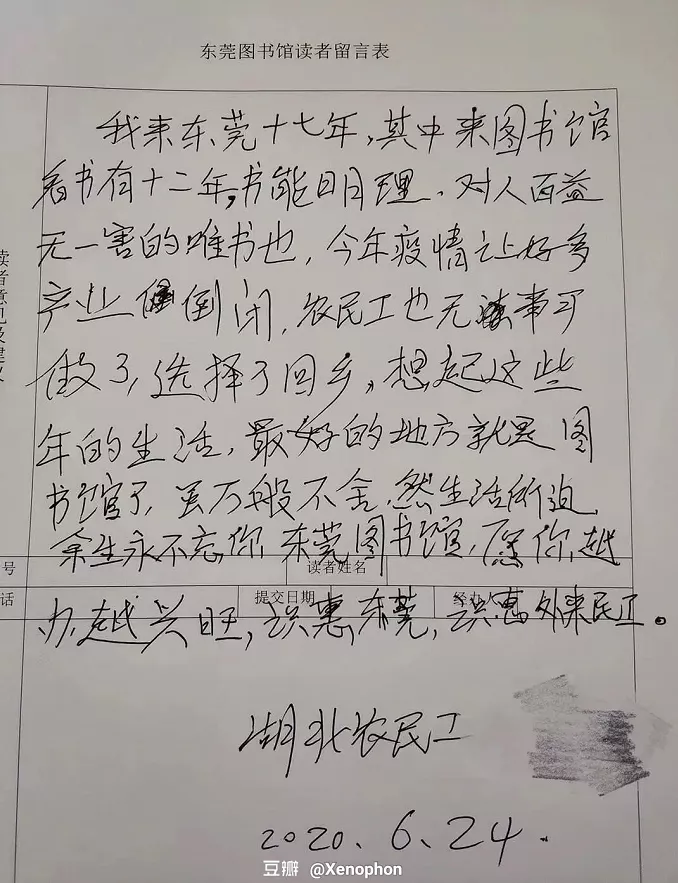 东莞图书馆读者留言表
我来东莞十七年,其中来图书馆
看书有十二年,书能明理、对人百益
无一害的唯书也,今年疫情让好多
产业倒闭,农民工也无事可
做了,选择了回乡,想起这些
年的生活,最好的地方就是图
书馆了,虽万般不舍,然生活所迫,
余生永不忘你,东莞图书馆,愿你越
号
读者姓名
话
提交日期
经办
办越兴旺,识惠东莞,识惠外来民工。
湖北农民工
2020、6、24.
豆瓣 @Xenophon